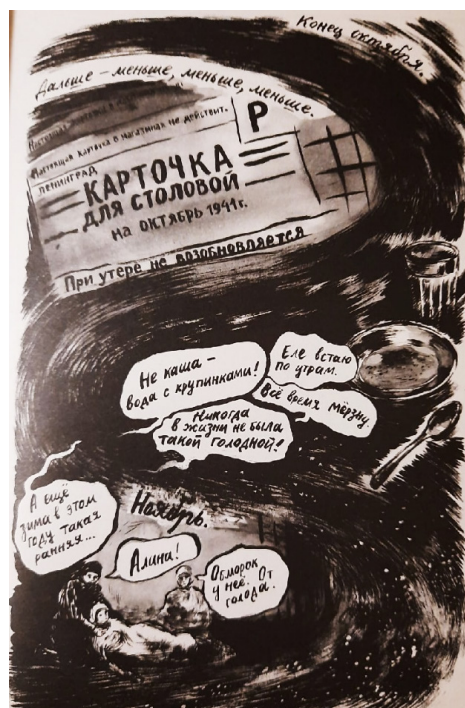 Конец октября.
Дальше – меньше, меньше, меньше.
Настоящая карточка в магазинах не действит.
Р
ЛЕНИНГРАД
КАРТОЧКА
ДЛЯ СТОЛОВОЙ
НА ОКТЯБРЬ 1941г.
При утере не возобновляется
Не каша –
вода с крупинками!
Еле встаю
по утрам.
Всё время мёрзну.
Никогда
в жизни не была
такой голодной!
А ещё
зима в этом
году такая
ранняя...
Ноябрь.
Алина!
Обморок
у неё. От
голода.